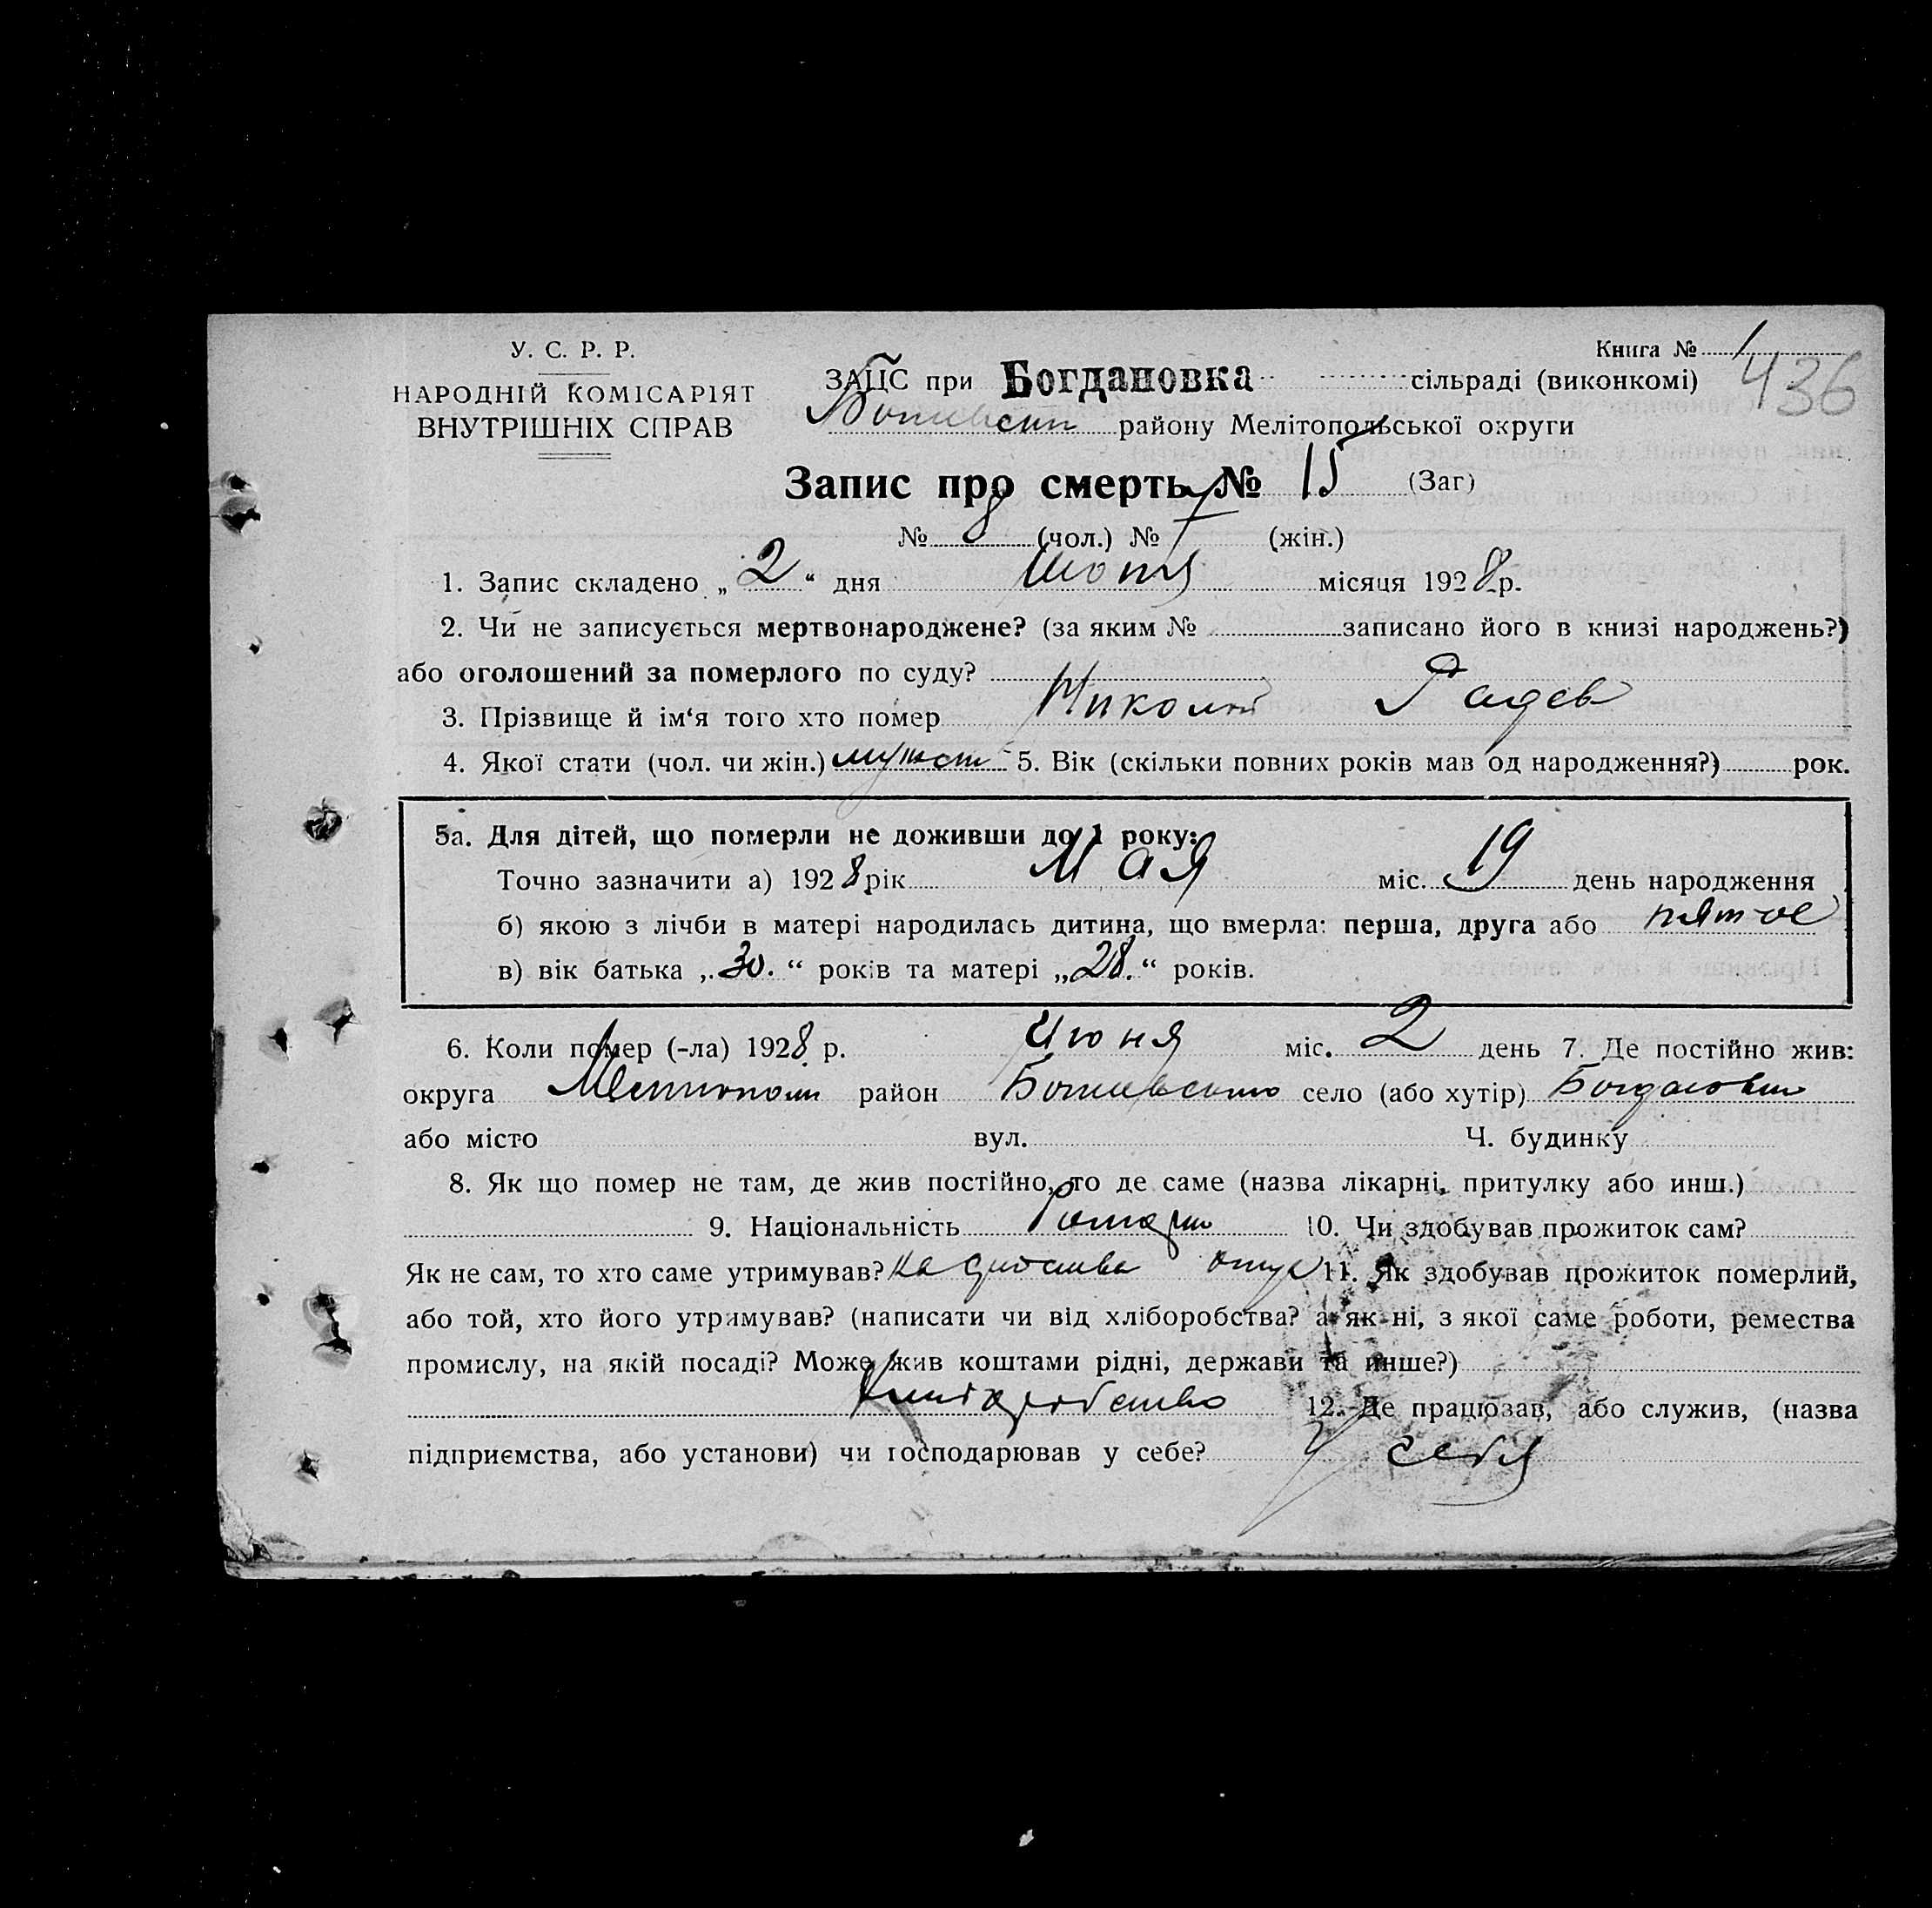 У. С. Р. Р.
НАРОДНІЙ КОМІСАРІЯТ
ВНУТРІШНІХ СПРАВ
Книга № 1
436
ЗАГС при Богдановка сільраді (виконкомі)
району Мелітопольської округи
Запис про смерть № 15 (Заг)
№ 8 (чол.) № 7 (жін.)
1. Запис складено „ 2 “ дня Июня місяця 1928 р.
2. Чи не записується мертвонароджене? (за яким № записано його в книзі народжень?)
або оголошений за померлого по суду?
3. Прізвище й ім‘я того хто помер Николай Радев
4. Якої стати (чол. чи жін.) мужск 5. Вік (скільки повних років мав од народження?) рок.
5а. Для дітей, що померли не доживши до 1 року:
Точно зазначити а) 1928 рік Мая міс. 19 день народження
б) якою з лічби в матері народилась дитина, що вмерла: перша, друга або пятое
в) вік батька „ 30. “ років та матері „ 28. “ років.
6. Коли помер (-ла) 1928 р. Июня міс. 2 день 7. Де постійно жив:
округа район село (або хутір)
або місто вул. Ч. будинку
8. Як що помер не там, де жив постійно, то де саме (назва лікарні, притулку або инш.)
9. Національність 10. Чи здобував прожиток сам?
Як не сам, то хто саме утримував? 11. Як здобував прожиток померлий,
або той, хто його утримував? (написати чи від хліборобства? а як ні, з якої саме роботи, ремества
промислу, на якій посаді? Може жив коштами рідні, держави та инше?)
12. Де працював, або служив, (назва
підприємства, або установи) чи господарював у себе? У себя